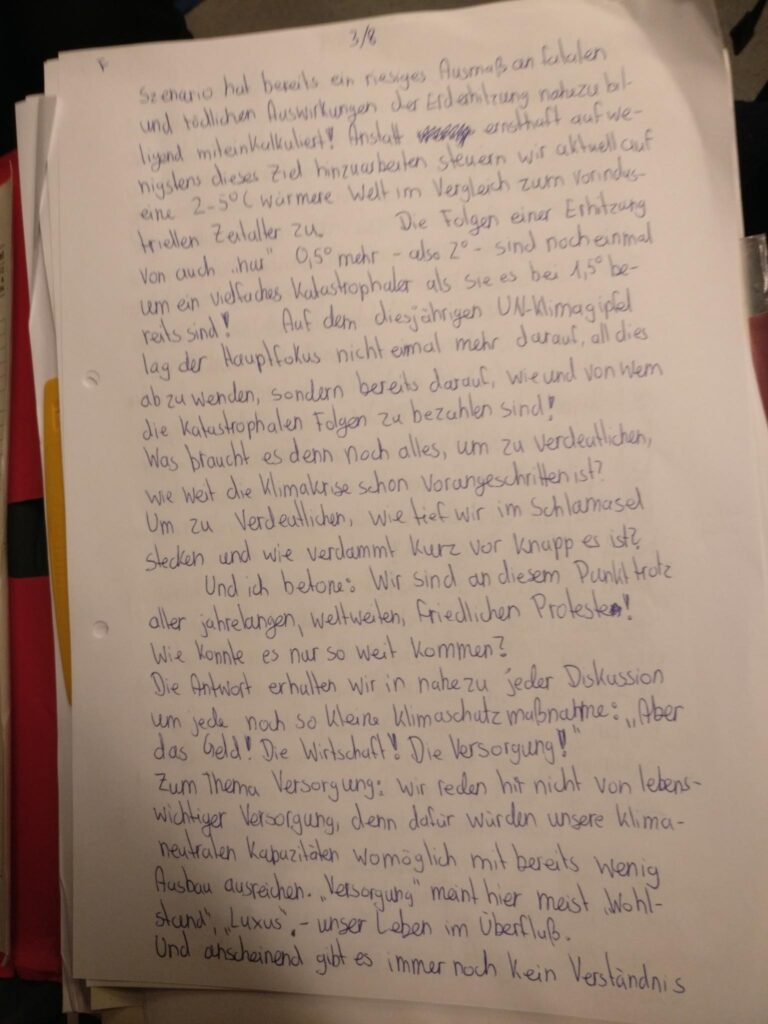 3/8
Szenario hat bereits ein riesiges Ausmaß an fatalen
und tödlichen Auswirkungen der Erderhitzung nahezu bil-
ligend miteinkalkuliert! Anstatt ernsthaft auf we-
nigstens dieses Ziel hinzuarbeiten steuern wir aktuell auf
eine 2-5°C wärmere Welt im Vergleich zum vorindus-
triellen Zeitalter zu. Die Folgen einer Erhitzung
von auch „nur" 0,5° mehr - also 2° - sind noch einmal
um ein vielfaches katastrophaler als sie es bei 1,5° be-
reits sind! Auf dem diesjährigen UN-Klimagipfel
lag der Hauptfokus nicht einmal mehr darauf, all dies
abzuwenden, sondern bereits darauf, wie und von wem
die katastrophalen Folgen zu bezahlen sind!
Was braucht es denn noch alles, um zu verdeutlichen,
wie weit die Klimakrise schon vorangeschritten ist?
Um zu verdeutlichen, wie tief wir im Schlamasel
stecken und wie verdammt kurz vor knapp es ist?
Und ich betone: Wir sind an diesem Punkt trotz
aller jahrelangen, weltweiten, friedlichen Proteste!
Wie konnte es nur so weit kommen?
Die Antwort erhalten wir in nahezu jeder Diskussion
um jede noch so kleine Klimaschutzmaßnahme: „Aber
das Geld! Die Wirtschaft! Die Versorgung!"
Zum Thema Versorgung: wir reden hir nicht von lebens-
wichtiger Versorgung, denn dafür würden unsere klima-
neutralen Kapazitäten womöglich mit bereits wenig
Ausbau ausreichen. „Versorgung" meint hier meist „Wohl-
stand", „Luxus", - unser Leben im Überfluß.
Und anscheinend gibt es immer noch kein Verständnis